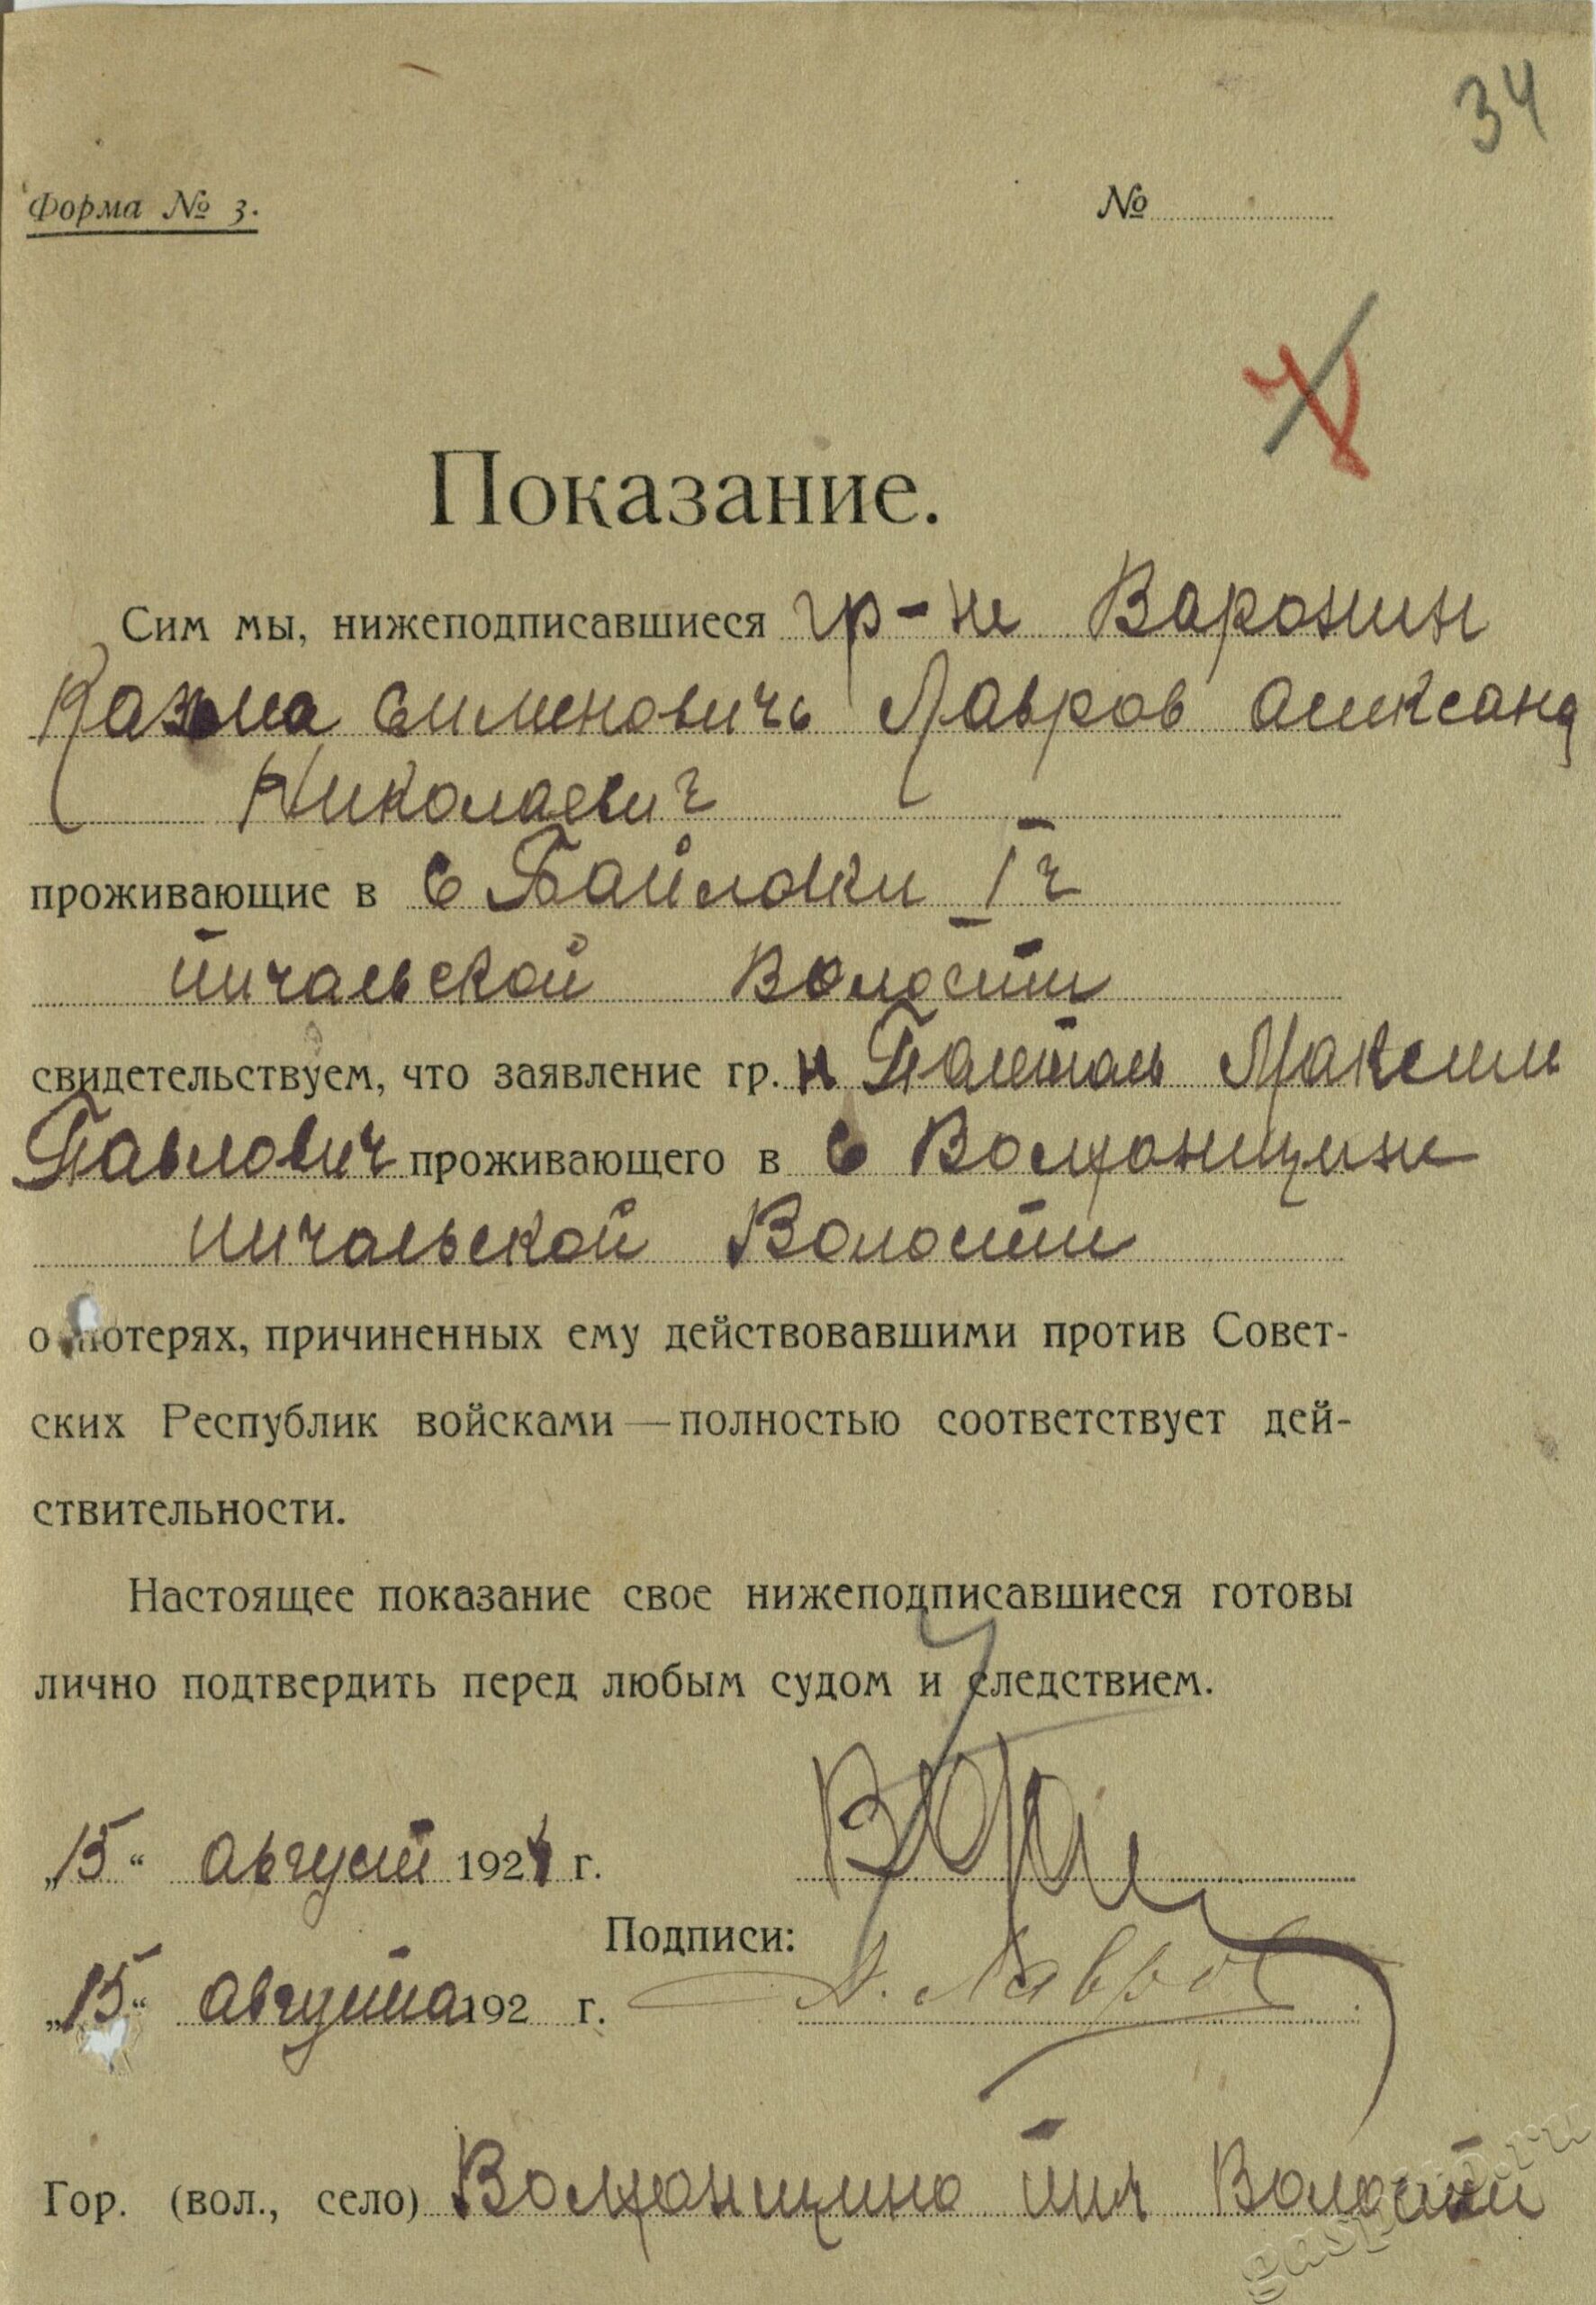 34
Форма № 3.
№
Показание.
Сим мы, нижеподписавшиеся гр-не Варонин
Казма Сименовичь Лавров Александ
Николаевич
проживающие в с Байловки I ч
пичальской Волости
свидетельствуем, что заявление гр. н Максим
Павлович проживающего в с Волхонщини
пичальской Волости
о потерях, причиненных ему действовавшими против Совет-
ских Республик войсками — полностью соответствует дей-
ствительности.
Настоящее показание свое нижеподписавшиеся готовы
лично подтвердить перед любым судом и следствием.
„15“ август 1924 г.
Подписи:
А. Лавров
„15“ августа 192 г.
Гор. (вол., село) Волхонщино пич Волости
gaspito.ru